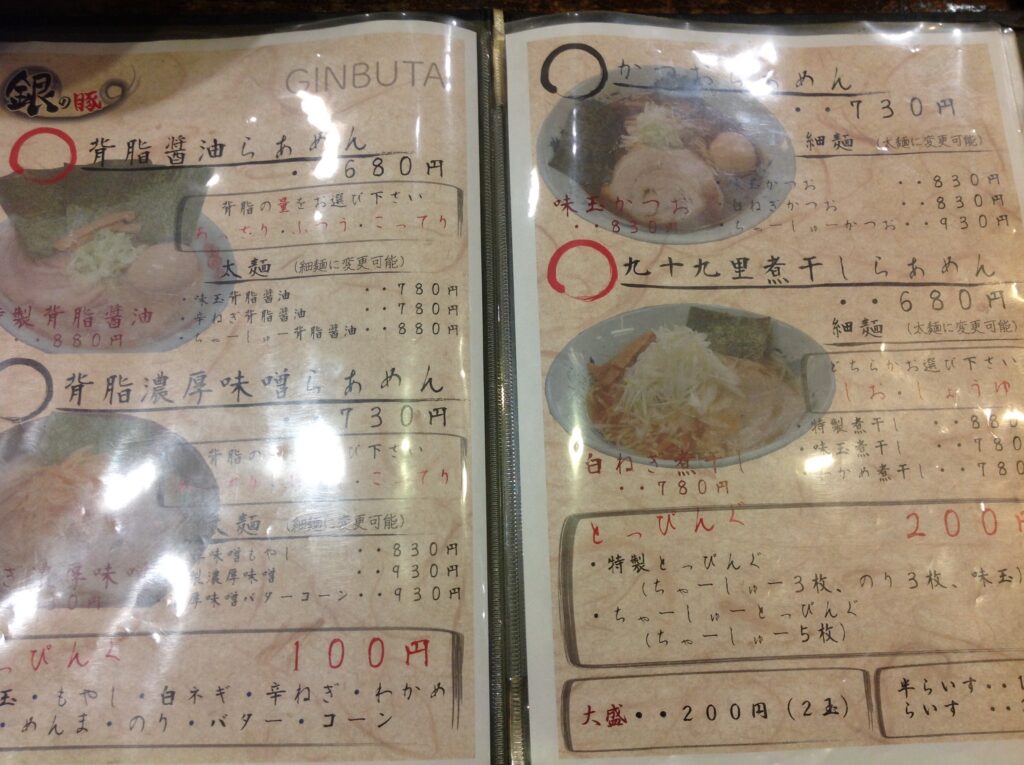 銀の豚
GINBUTA
背脂醬油らあめん
・・680円
背脂の量をお選び下さい
・ふつう・こってり
太麺 (細麺に変更可能)
・味玉背脂醤油 ・・780円
・辛ねぎ背脂醤油 ・・780円
・ちゃーしゅー背脂醤油 ・・880円
製背脂醤油
・・880円
背脂濃厚味噌らあめん
730円
背脂の
・こってり
太麺 (細麺に変更可能)
味噌もやし ・・830円
濃厚味噌 ・・930円
味噌バターコーン・・930円
厚味
っぴんぐ 100円
玉・もやし・白ネギ・辛ねぎ・わかめ
・めんま・のり・バター・コーン
かつおらあめん
・・730円
細麺 (太麺に変更可能)
かつお ・・830円
ねぎかつお ・・830円
・ちゃーしゅーかつお・・930円
味玉かつお
・・830円
九十九里煮干しらあめん
・・680円
細麺 (太麺に変更可能)
どちらかお選び下さい
しお・しょうゆ
・特製煮干し ・・880
・味玉煮干し ・・780
わかめ煮干し ・・780
白ねぎ煮干し
・・780円
とっぴんぐ 200円
・特製とっぴんぐ
(ちゃーしゅー3枚、のり3枚、味玉)
・ちゃーしゅーとっぴんぐ
(ちゃーしゅー5枚)
大盛・・200円(2玉)
半らいす・・1
らいす ・・